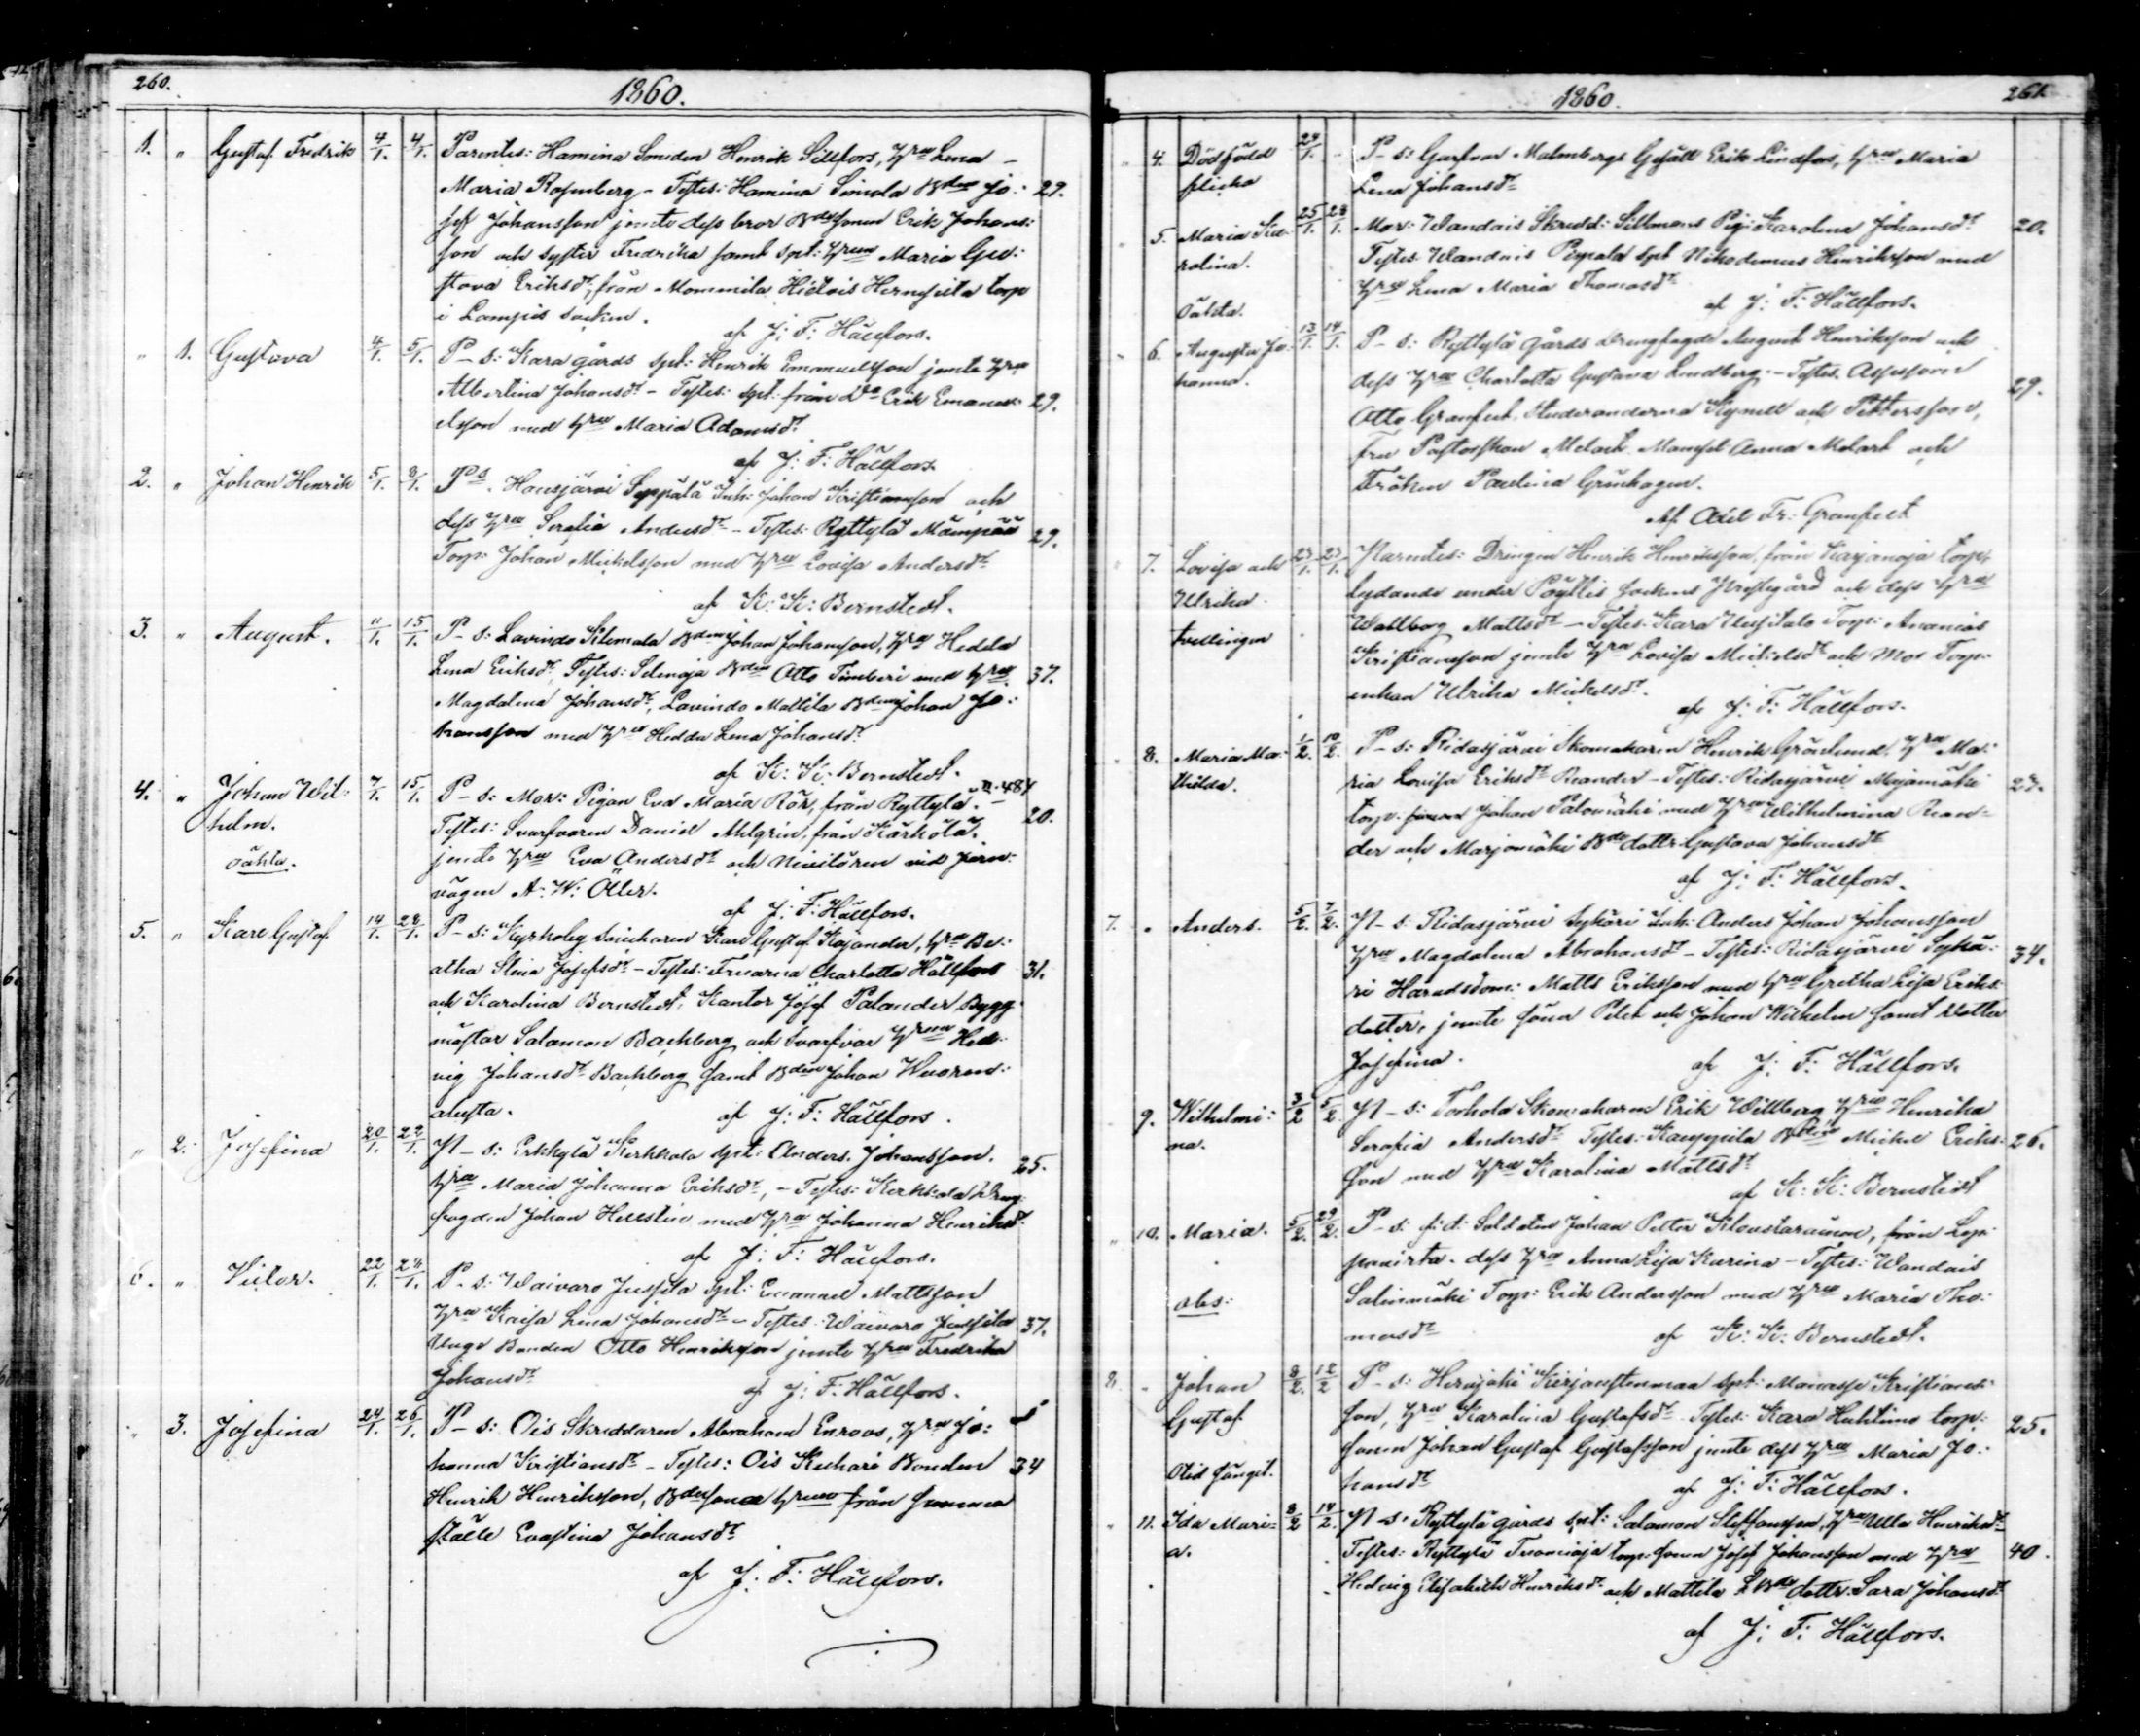 260.
1860.
1. " Gustaf Fredrik 4/1. 4/1. Parentes: Hamina Smeden Henrik Sillfors, Hru Lena
Maria Rosenberg - Testes: Hamina Simola Bden Jo: 29.
sef Johansson jemte dess bror Bdesonen Erik Johans:
son och syster Fredrika samt spt: Hrun Maria Gu:
stava Eriksdr, från Mommila Hietois Hernesilta torp
i Lampis socken.
af J: F: Hällfors.
" 1. Gustava 4/1. 5/1. P-s: Kara gårds spt: Henrik Emanuelsson jemte Hru
Albertina Johansdr - Testes: spt: från Do Erik Emanu: 29.
elsson med Hru Maria Adamsdr
af J: F: Hällfors.
2. " Johan Henrik 5/1. 8/1. P-s. Hausjärvi Seppälä Inh: Johan Kristiansson och
dess Hru Serafia Andersdr - Testes: Ryttylä Mäenpää 29.
Torp: Johan Mickelsson med Hru Lovisa Andersdr
af K: K: Bernstedt.
3. " August. 11/1. 15/1. P-s: Lavindo Kilemala Bden Johan Johansson, Hru Hedda
Lena Eriksdr, Testes: Selenoja Bden Otto Timberi med Hru 37.
Magdalena Johansdr, Lavindo Mattila Bden Johan Jo:
hansson med Hru Hedda Lena Johansdr
af K: K: Bernstedt.
4. " Johan Wil: 7/1. 15/1. P-s: Mor: Pigan Eva Maria Rör, från Ryttylä. - 484
helm. Testes: Svarfvaren Daniel Ahlgrin, från Karhola, 20.
oäkta. jemte Hru Eva Andersdr och Nivilören vid jern:
vägen A: W: Öller.
af J: F: Hällfors.
5. " Karl Gustaf 14/1. 28/1. P-s: Kyrkoby Snickaren Karl Gustaf Kajander, Hru Be:
atha Stina Josefsdr - Testes: Fruarna Charlotta Hällfors 31.
och Karolina Bernstedt, Kantor Josef Palander Bygg
mästar Salamon Bachberg och Svarfvar Hrun Hed:
vig Johansdr Bachberg samt Bden Johan Wuoren:
alusta. af J: F: Hällfors.
" 2. Josefina 20/1. 22/1. P-s: Erkkylä Kerkkola spt: Anders Johansson.
Hru Maria Johanna Eriksdr, - Testes: Kerkkola Dreng 25.
fogden Johan Hellstin med Hru Johanna Henriksdr
af J: F: Hällfors.
6. " Victor. 22/1. 28/1. P-s: Waivaro Jussila Spt: Emanuel Mattsson
Hru Kaisa Lena Johansdr - Testes: Waivaro Jussila 37.
Unge Bonden Otto Henriksson jemte Hru Fredrika
Johansdr af J: F: Hällfors.
" 3. Josefina 24/1. 26/1. P-s: Ois Skreddaren Abraham Enroos, Hru Jo:
hanna Kristiansdr - Testes: Ois Kuhari Bonden 34
Henrik Henriksson, Bdesonen Hrun från samma
ställe Evastina Johansdr
af J: F: Hällfors.
1860.
261
" 4. Dödfödd 24/1. - P-s: Garfvar Malmbergs Gesäll Erik Lindfors, Hru Maria
flicka Lena Johansdr
" 5. Maria Ka- 25/1. 28/1. Mor: Wandois Skredd: Sillmans Pig: Karolina Johansdr 20.
rolina. Testes: Wandois Pispala Spt Nikodemus Henriksson med
Hru Lena Maria Thomasdr
oäkta. af J: F: Hällfors.
" 6. Augusta Jo- 13/1. 14/1. P-s: Ryttylä gårds Drengfogde August Henriksson och
hanna. dess Hru Charlotta Gustava Lindberg. - Testes. Assessoren 29.
Otto Granfelt, Studeranderna Kynell och Pettersson,
Fru Pastorskan Melart. Mamsel Anna Melart och
Fröken Paulina Grünhagen.
Af Axel Fr: Granfelt
" 7. Lovisa och 23/1. 23/1. Parentes: Drengen Henrik Henriksson, från Karjanoja torp,
Ulrika lydande under Pöyttis sockens Prestgård och dess Hru
tvillingar Wallborg Mattsdr - Testes: Kara Uusitalo Torp: Ananias
Kristiansson jemte Hru Lovisa Mickelsdr och Mor Torp:
enkan Ulrika Mickelsdr.
af J: F: Hällfors.
" 8. Maria Ma- 1/2. 10/2. P-s: Ridasjärvi Skomakaren Henrik Grönlund, Hru Ma:
thilda. ria Lovisa Eriksdr Reander - Testes: Ridasjärvi Majamäki 27.
torp. Johan Palomäki med Hru Wilhelmina Rean-
der och Marjomäki Bde dottr: Gustava Johansdr
af J: F: Hällfors.
7. " Anders. 5/2. 7/2. P-s: Ridasjärvi Sykäri Inh: Anders Johan Johansson
Hru Magdalena Abrahamsdr - Testes: Ridasjärvi Sykä: 34.
ri Häradsdom: Matts Eriksson med Hru Gretha Lisa Eriks:
dotter, jemte söner Peter och Johan Wilhelm samt dotter
Josefina. af J: F: Hällfors.
9. Wilhelmi: 3/2 5/2. P-s: Torhola Skomakaren Erik Willberg Hru Henrika
na. Serafia Andersdr Testes: Kauppila Bden Michel Eriks- 26.
son med Hru Karolina Mattsdr
af K: K: Bernstedt
" 10. Maria. 5/2. 29/2. P-s: f: d: Soldaten Johan Petter Kilvastarainen, från Lep:
panirta. dess Hru Anna Lisa Karina - Testes: Wandois
obs: Salinmäki Torp: Erik Andersson med Hru Maria Tho:
masdr af K: K: Bernstedt.
8. " Johan 8/2. 12/2 P-s: Herajoki Kerjanstenmaa Spt: Manasse Kristians:
Gustaf son, Hru Karolina Gustafsdr Testes: Kara Huhtimo torp: 25.
sonen Johan Gustaf Gustafsson jemte dess Hru Maria Jo:
hansdr af J: F: Hällfors.
" 11. Ida Mari- 8/2 14/2. P-s: Ryttylä gårds spt: Salamon Steffansson, Hru Ulla Henriksdr
a. Testes: Ryttylä Tuomioja torp: sonen Josef Johansson med Hru 40.
Hedvig Elisabeth Henriksdr och Mattila Bde dottr: Sara Johansdr
af J: F: Hällfors.